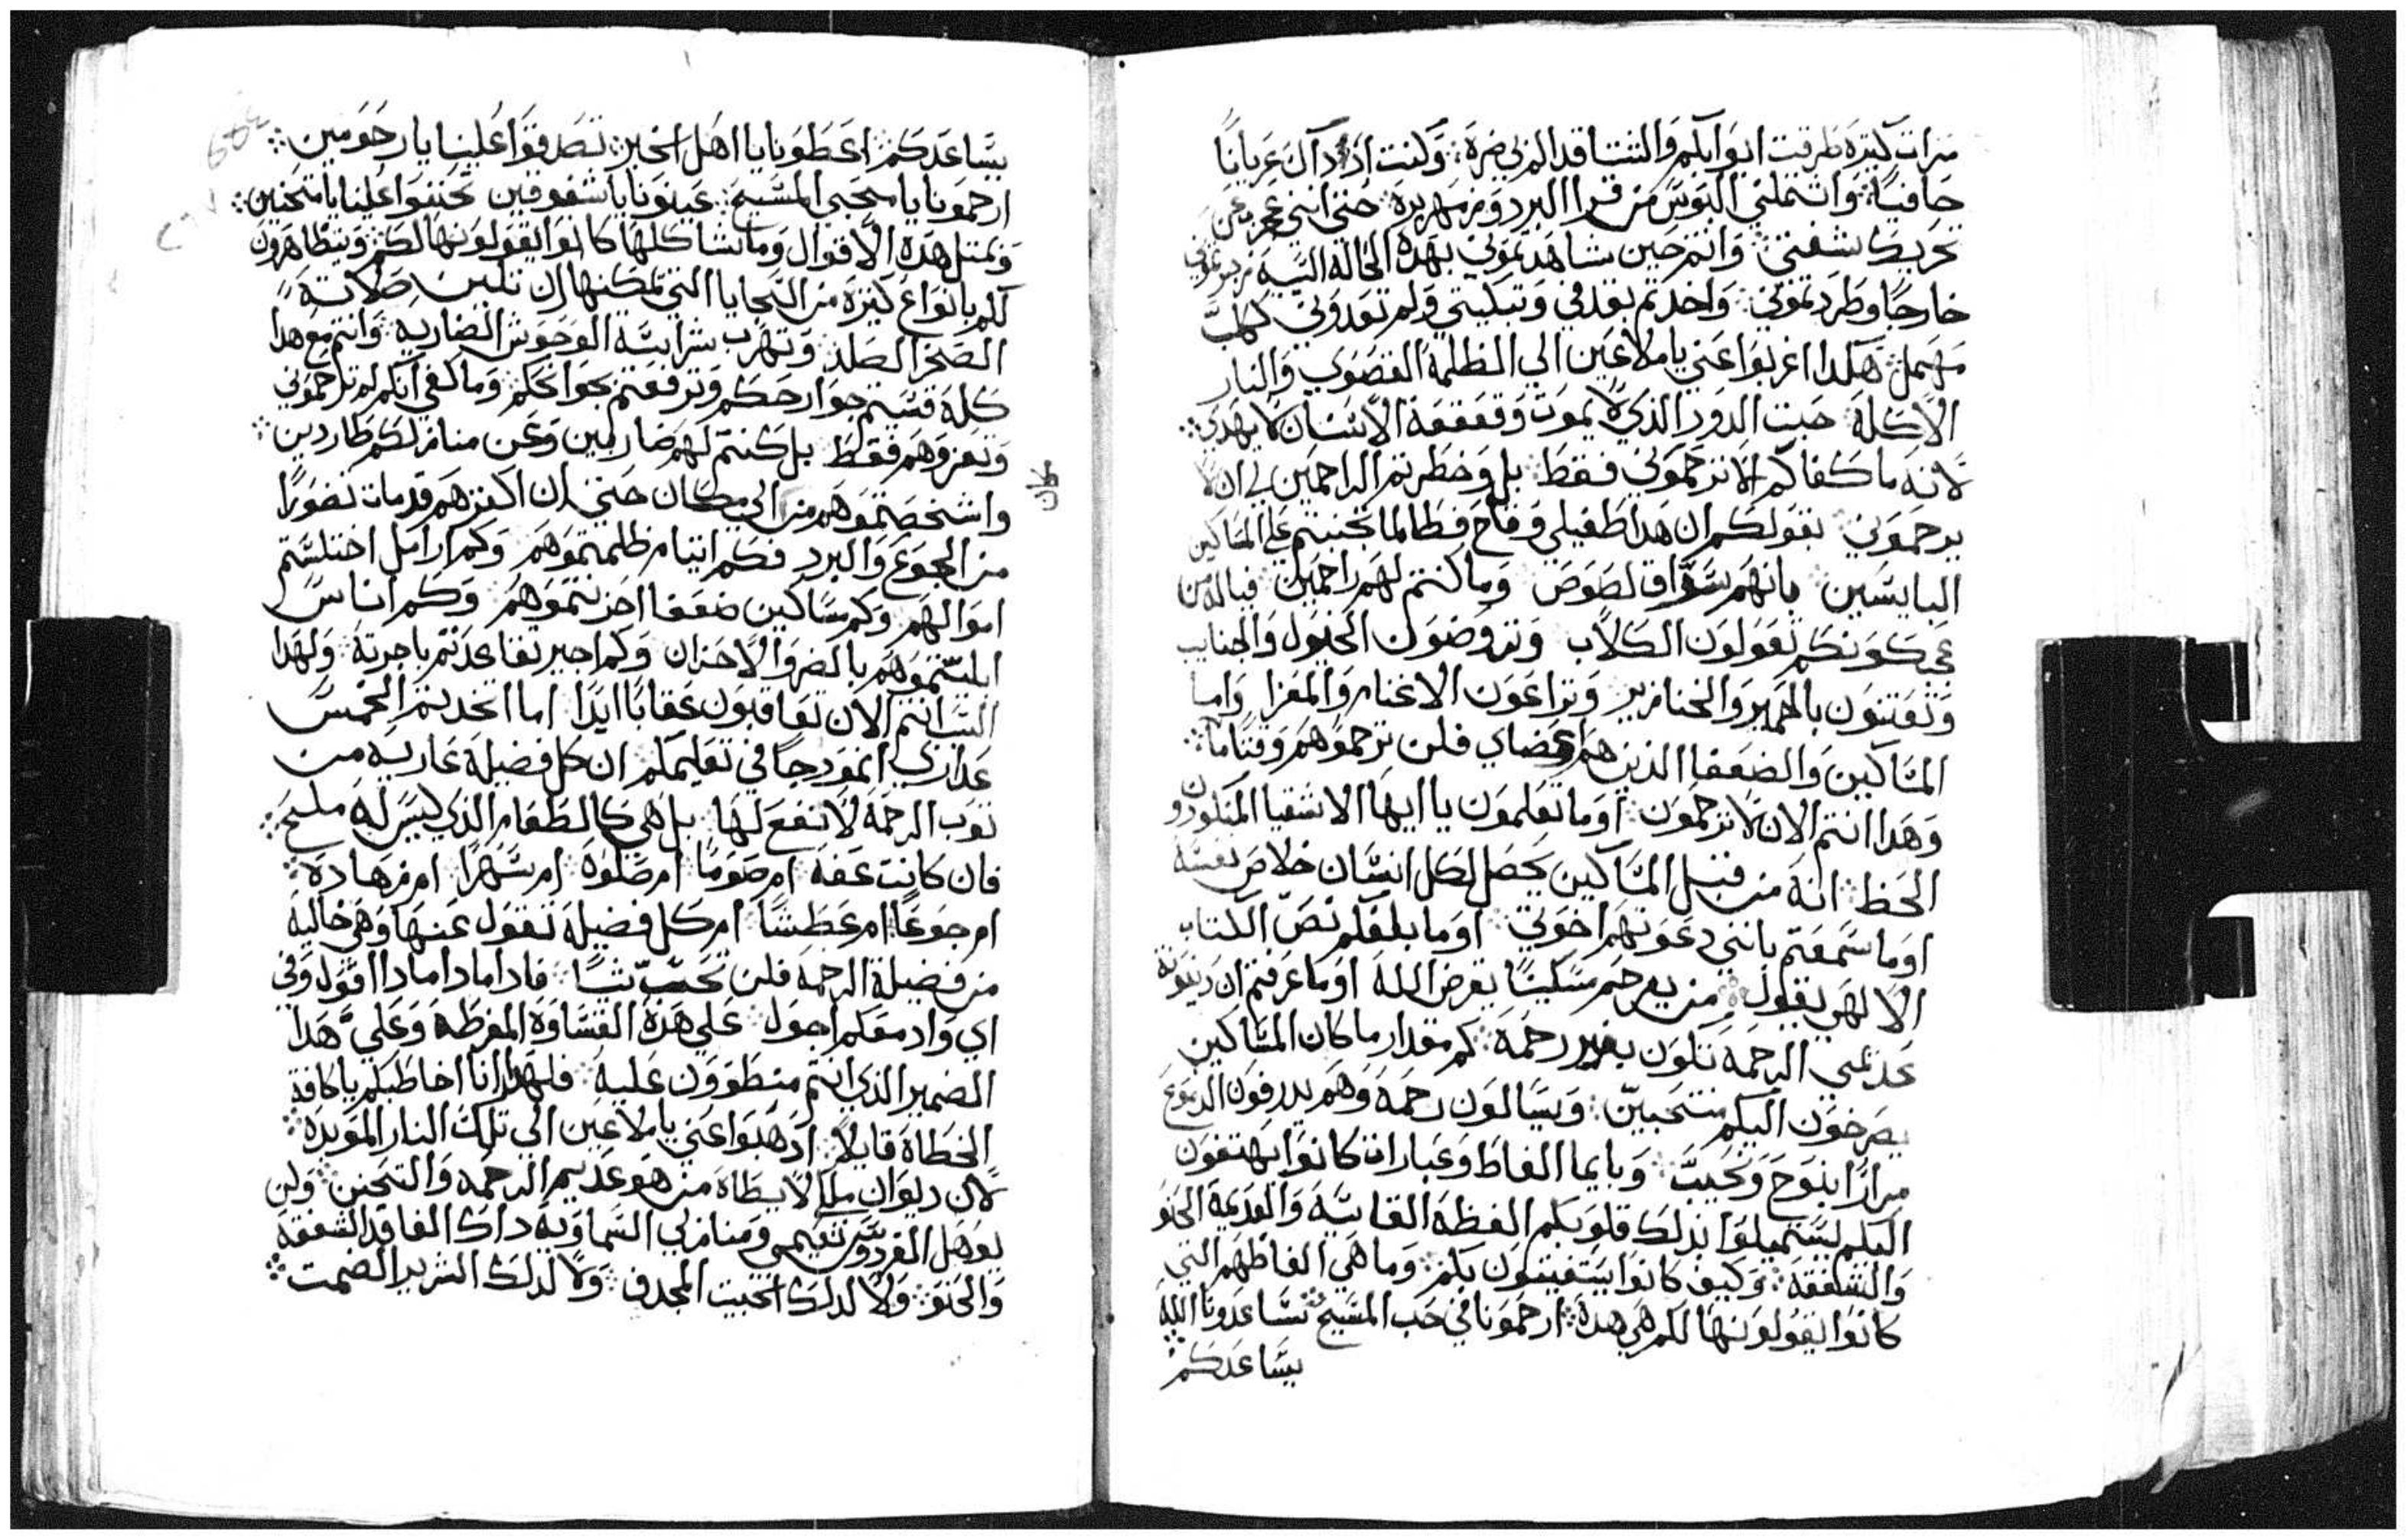 مرات كتيره طرقت ابوابكم والشتا قد المرني ضرة وكنت اد داك عريانًا
حافيًا واشتملني البوس من قر البرد وزمهريره حتي انني عجزت عن
تحريك شفتي وانتم حين شاهدتموني بهده الحالة السيه
خارجًا وطردتموني واخدتم بقدفي وتبكيتي ولم تعدوني كلب
مهمل هكدا اغربوا عني يا ملاعين الي الظلمة القصوي والنار
الاكلة حيت الدود الذي لا يموت وقعقعة الاسنان لا تهدي
لانه ما كفاكم الا ترحموني فقط بل وخطرتم الراحمين لي ان لا
يرحموني بقولكم ان هدا طفيلي وقاح فطالما تجنيتم علي المساكين
البايسين بانهم سراق لصوص وما كنتم لهم راحمين فياله من
عجب كونكم تعولون الكلاب وتروضون الخيول والجنايب
وتعتنون بالحمير والخنازير وتراعون الاغنام والمعزا واما
المساكين والضعفا الذين هم اعضاي فلن ترحموهم وقتًا ما
وهدا انتم الان لا ترحمون اوما تعلمون يا ايها الاشقيا المنكودون
الحظ انه من قبل المساكين يحصل لكل انسان خلاص نفسه
اوما سمعتم بانني دعوتهم اخوتي اوما بلغكم نص الكتاب
الالهي يقول من يرحم مسكينًا يقرض الله اوما عرفتم ان دينونة
عديمي الرحمة تكون بغير رحمة كم مقدار ما كان المساكين
يصرخون اليكم منتحبين ويسالون رحمة وهم يدرفون الدموع
مرارًا بنوح ونحيب وبايما الفاظ وعبارات كانوا يهتفون
اليكم ليستميلوا بدلك قلوبكم الفظة القاسية والعديمة الحنو
والشفقة وكيف كانوا يستغيتون بكم وما هي الفاظهم التي
كانوا يقولونها لكم هي هده ارحمونا في حب المسيح تساعدونا الله
يساعدكم
يساعدكم اعطونا يا اهل الخير تصدقوا علينا يا رحومين
ارحمونا يا محبي المسيح عينونا يا شفوقين تحننوا علينا يا متحنين
وبمتل هده الاقوال وما شاكلها كانوا يقولونها لكم ويتظاهرون
لكم بانواع كتيره من السجايا التي تمكنها ان تلين صلابة
الصخر الصلد وتهرب شراسة الوحوش الضاريه وانتم مع هدا
كله قسيتم جوارحكم وترفعتم بجوانحكم وما كفي انكم لم ترحموني
وتعزوهم فقط بل كنتم لهم ضاربين وعن منازلكم طاردين
واشخصتموهم من مكان الي مكان حتي ان اكترهم قد مات تضورًا
من الجوع والبرد فكم ايتام ظلمتموهم وكم ارامل اختلستم
اموالهم وكم مساكين ضعفا احزنتموهم وكم اناس
ابليتموهم بالضر والاحزان وكم اجير تقاعدتم باجرته ولهدا
السبب انتم الان تعاقبون عقابًا ابدًا اما اتخدتم الخمس
عداري انمودجًا في تعليمكم ان كل فضيلة عارية من
توب الرحمة لا نفع لها بل هي كالطعام الذي ليس له ملح
فان كانت عفة ام صومًا ام صلوة ام سهرًا ام زهادة
ام جوعًا ام عطشًا ام كل فضيلة تقول عنها وهي خالية
من فضيلة الرحمة فلن تحسب شيًا فادا مادا مادا اقول وفي
اي واد معكم اجول علي هده القساوة المفرطة وعلي هدا
الضمير الذي انتم منطوون عليه فلهدا انا اخاطبكم يا كافة
الخطاة قايلًا ادهبوا عني يا ملاعين الي تلك النار الموبده
لان ديوان ملكي لا يطاه من هو عديم الرحمه والتحنن ولن
يوهل الفردوس نعيمي ومنازلي السماوية داك الفاقد الشفقة
والحنو ولا لدلك الخبيت المجدف ولا لدلك الشرير الصمت